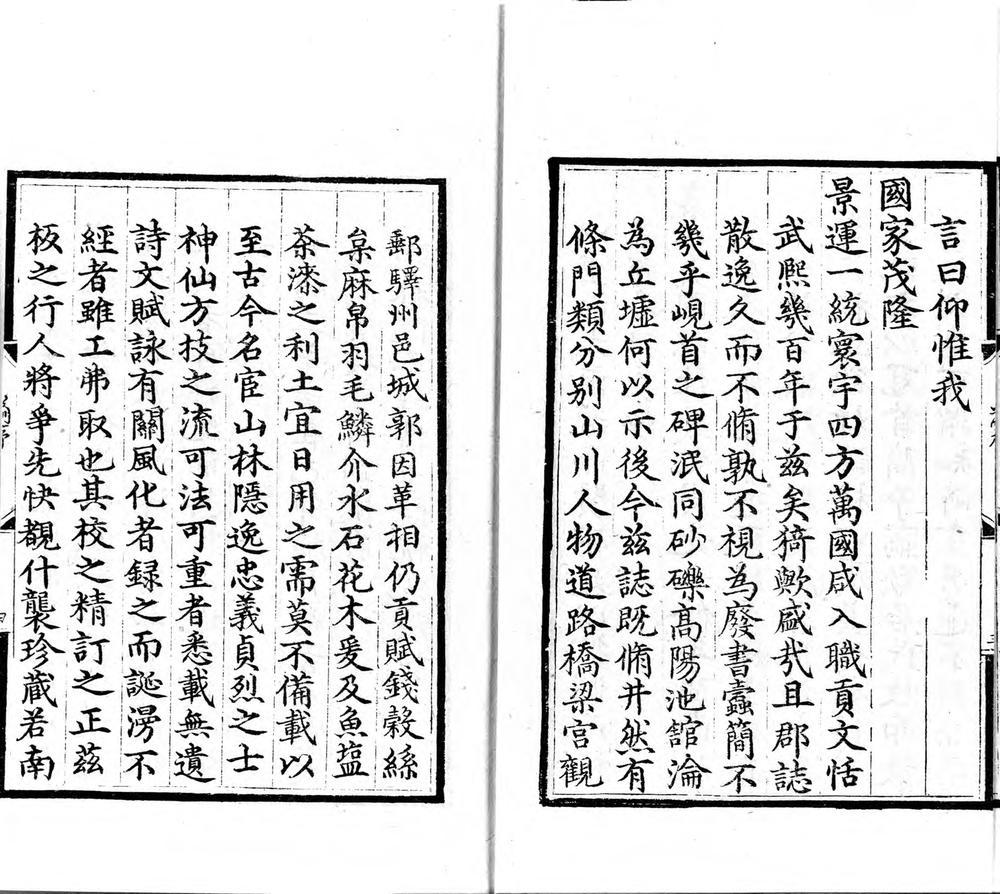 言曰仰惟我
國家茂隆
景運一統寰宇四方萬國咸入職貢文恬
武熙幾百年于兹矣猗歟盛㢤且郡誌
散逸久而不脩孰不視為廢書蠹簡不
幾乎峴首之碑泯同砂礫高陽池舘淪
為丘墟何以示後今兹誌既脩井然有
條門類分别山川人物道路橋梁宫觀
郵驛州邑城郭因革相仍貢賦錢榖絲
枲麻帛羽毛鱗介水石花木爰及魚塩
茶漆之利土宜日用之需莫不備載以
至古今名宦山林隱逸忠義貞烈之士
神仙方技之流可法可重者悉載無遺
詩文賦詠有關風化者録之而誕漫不
經者雖工弗取也其校之精訂之正兹
板之行人將爭先快覩什襲珍藏若南